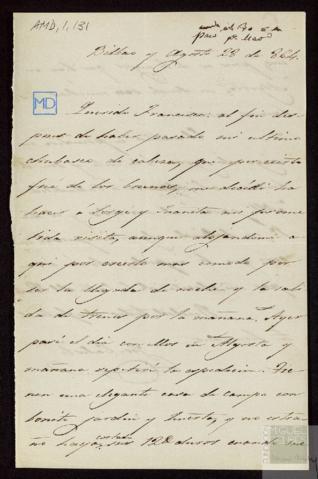 AMD, 1, 131
Bilbao y Agosto 28 de 864.
MD
Querido Francisco: al fin des
pues de haber pasado mi ultimo
chubasco de cabeza, que por cierto
fue de los buenos, me decidí ha
hacer á Jorge y Juanita mi prome
tida visita, aunque alojandome a
qui por creerlo mas comodo por
ser la llegada de noche y la sali
da de trenes por la mañana. Ayer
pasé el dia con ellos en Algorta y
mañana repetiré la espedicion. Tie
nen una elegante casa de campo con
bonito jardin y huerta, y no estra
ño haya costado sus 12 duros cuando me